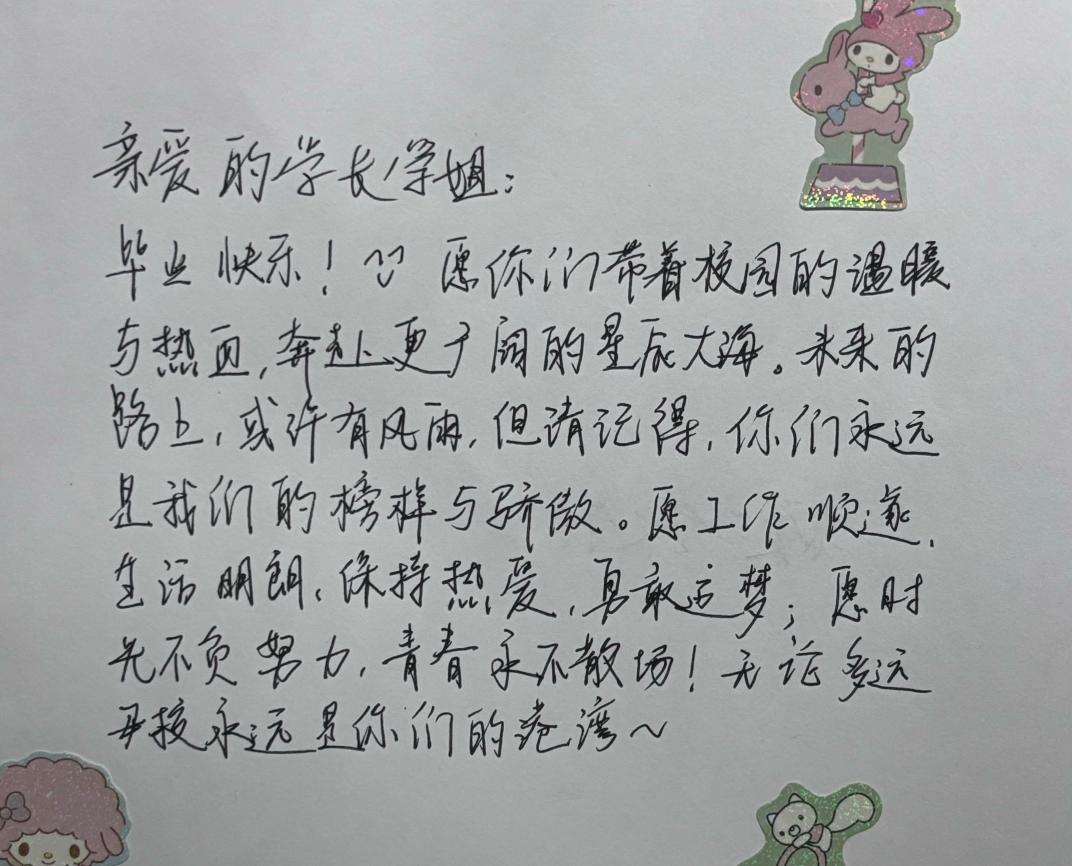 亲爱的学长学姐：
毕业快乐！愿你们带着校园的温暖
与热血，奔赴更广阔的星辰大海。未来的
路上，或许有风雨，但请记得，你们永远
是我们的榜样与骄傲。愿工作顺遂，
生活明朗，保持热爱，勇敢追梦；愿时
光不负努力，青春永不散场！无论多远
母校永远是你们的港湾～